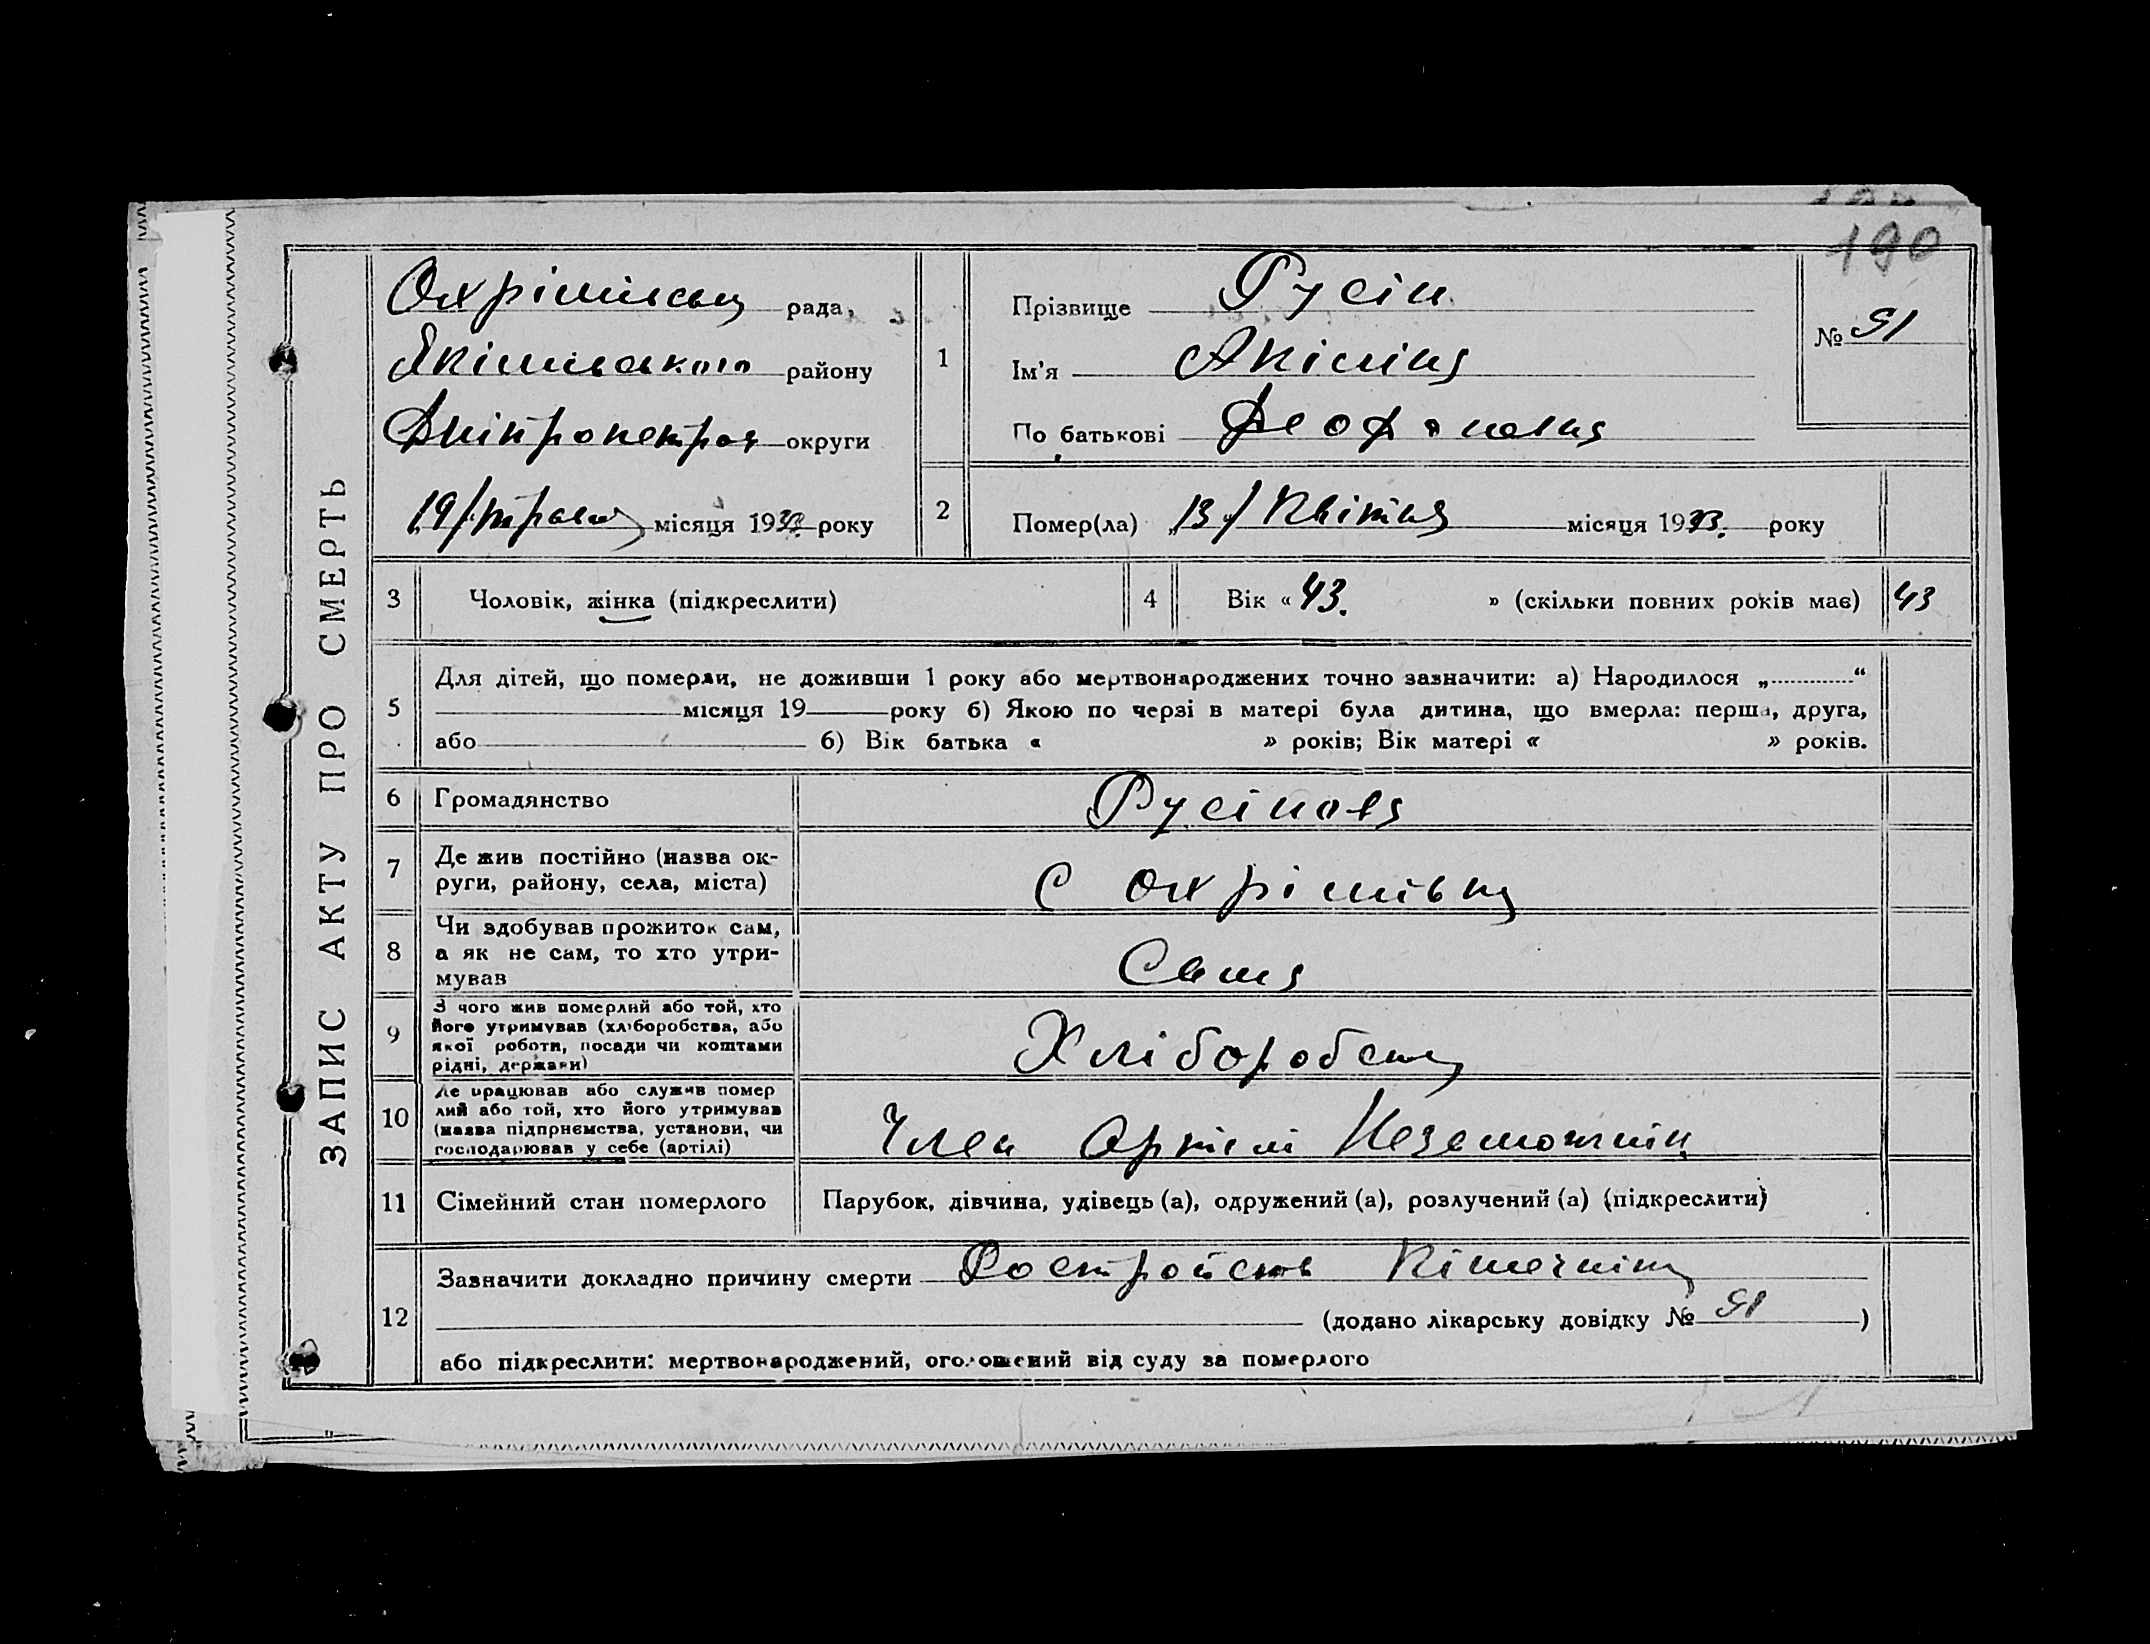 190
ЗАПИС АКТУ ПРО СМЕРТЬ
Охрімівська рада,
Якимівського району
Дніпропетров округи
19/травня місяця 1933 року
1
Прізвище Русін
Ім'я Акіліна
По батькові Феофановна
№ 91
2
Помер(ла) „13/Квітня місяця 1933. року
3
Чоловік, жінка (підкреслити)
4
Вік «43. » (скільки повних років має)
43
5
Для дітей, що померли, не доживши 1 року або мертвонароджених точно зазначити: а) Народилося „ “
місяця 19 року б) Якою по черзі в матері була дитина, що вмерла: перша, друга,
або б) Вік батька « » років; Вік матері « » років.
6
Громадянство
7
Де жив постійно (назва ок-
руги, району, села, міста)
С Охрімівка
8
Чи здобував прожиток сам,
а як не сам, то хто утри-
мував
Сама
9
З чого жив померлий або той, хто
його утримував (хліборобства, або
якої роботи, посади чи коштами
рідні, держави)
Хліборобства
10
Де працював або служив помер
лий або той, хто його утримував
(назва підприємства, установи, чи
господарював у себе (артілі)
Член Артілі Незаможнік
11
Сімейний стан померлого
Парубок, дівчина, удівець (а), одружений (а), розлучений (а) (підкреслити)
12
Зазначити докладно причину смерти Розтройств Кішечніка
(додано лікарську довідку № 91 )
або підкреслити: мертвонароджений, оголошений від суду за померлого